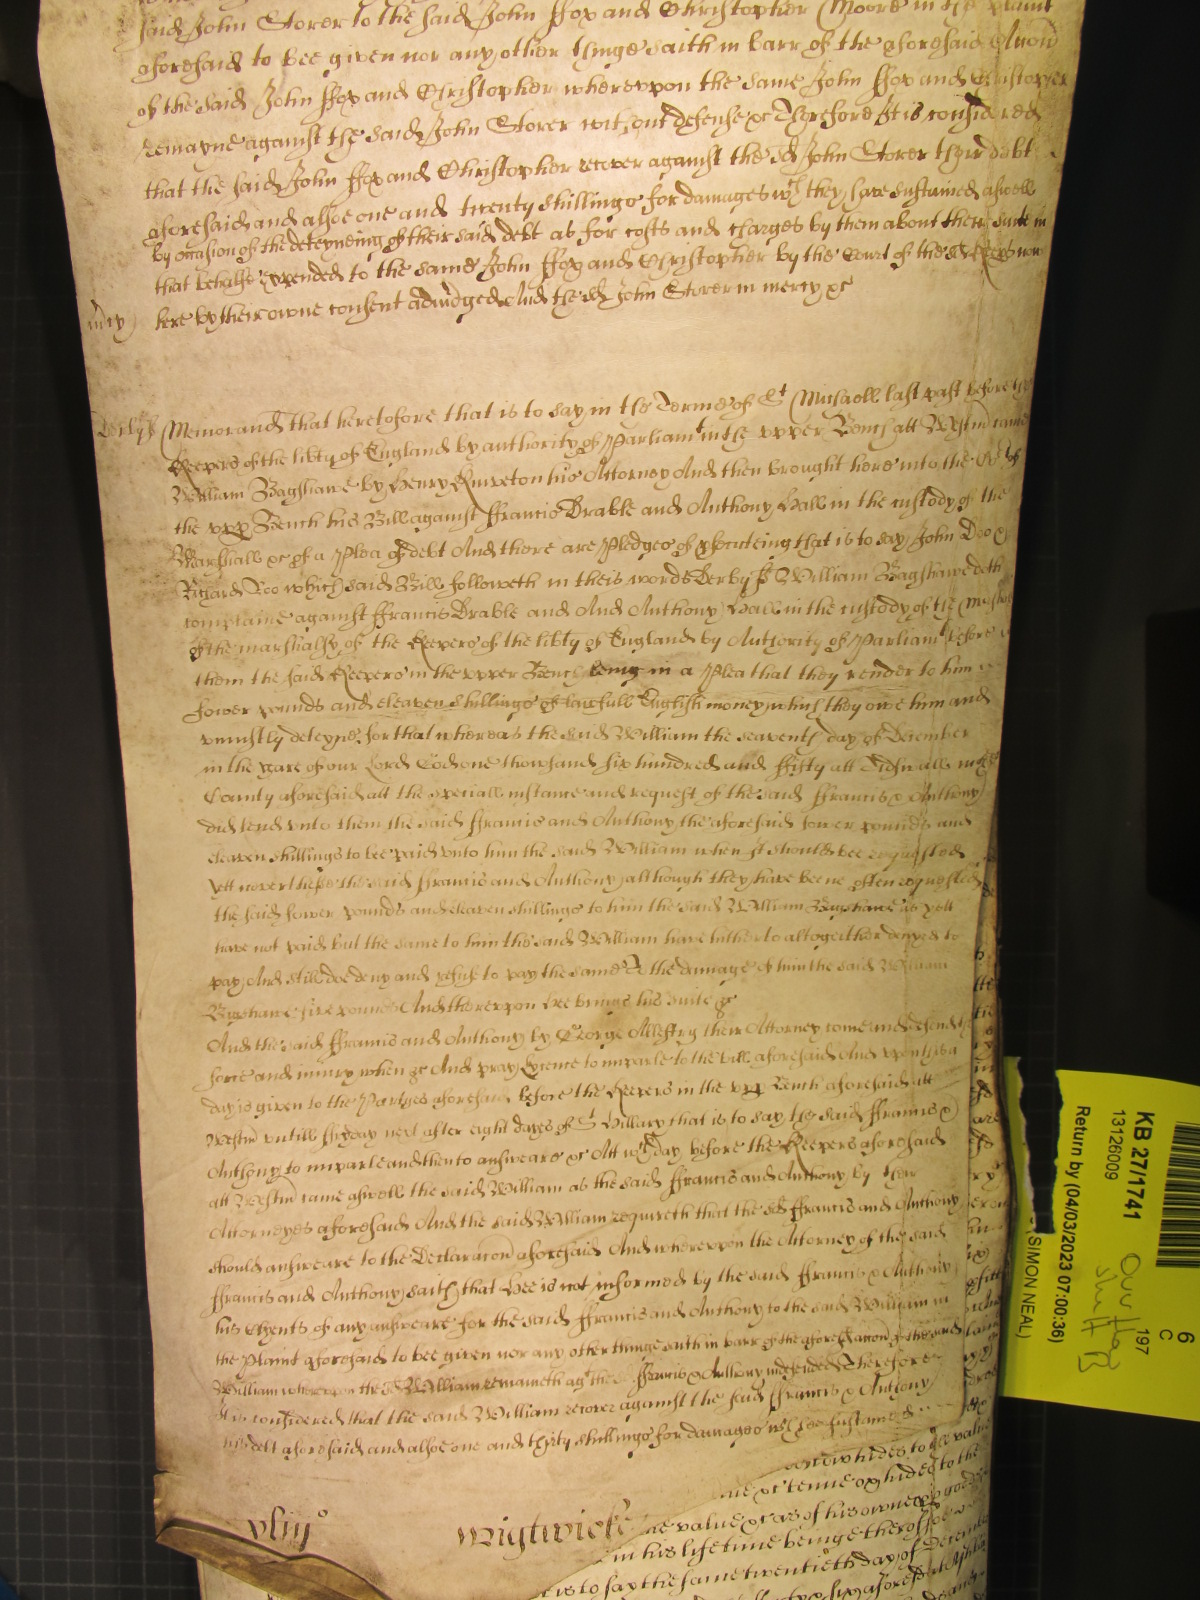 said John Storer to the said John ffox and Christopher Moore in the plaint
aforesaid to bee given nor any other thinge saith in barr of the aforesaid Accon
of the said John ffox and Christopher whereupon the same John ffox and Christopher
remayne against the said John Storer without defense &c Therefore It is considered
that the said John ffox and Christopher recover against the sd John Storer their debt
aforesaid and alsoe one and twenty shillings for damages wch they have susteined aswell
by occasion of the deteyneing of their said debt as for costs and charges by them about their suite in
that behalfe expended to the same John ffox and Christopher by the Court of the sd Keepers now
here by their owne consent adiudged And the sd John Storer in mercy &c
mcy
Derby ss Memorand that heretofore that is to say in the Terme of St Michaell last past before the
Keepers of the libty of England by authority of Parliamt in the upper Bench att Westm came
William Bagshawe by Henry Kinveton his Attorney And then brought here into the Cot of
the upp Bench his Bill against ffrancis Drable and Anthony Hall in the custody of the
Marshall &c of a Plea of debt And there are Pledges of psecuteing that is to say John Doo &
Richard Roo which said Bill followeth in theis words Derby ss William Bagshawe doth
complaine against ffrancis Drable and And Anthony Hall in the custody of the
of the marshalsy of the Keepers of the libty of England by Authority of Parliamt before
them the said Keepers in the upper Bench being in a Plea that they render to him
fower pounds and eleaven shillings of lawfull English money which they owe him and
uniustly deteyne for that whereas the said William the seaventh day of December
in the yeare of our Lord God one thowsand six hundred and ffifty att Tidswall in the
County aforesaid att the speciall instance and request of the said ffrancis & Anthony
did lend unto them the said ffrancis and Anthony the aforesaid fower pounds and
eleaven shillings to bee paid unto him the said William when It should bee requested
yett neverthelesse the said ffrancis and Anthony although they have beene often requested
the said fower pounds and eleaven shillings to him the said William Bagshawe as yett
have not paid but the same to him the said William have hitherto altogeither denyed to
pay And still doe deny and refuse to pay the same To the damage of him the said William
Bagshawe five pounds And thereupon hee brings his suite &c
And the said ffrancis and Anthony by George Alleffry their Attorney come and defend the
force and iniury when &c And pray Lycence to imparle to the bill aforesaid And upon this a
day is given to the Partyes aforesaid before the Keepers in the upp Bench aforesaid att
Westm untill ffryday next after eight dayes of St Hillary that is to say the said ffrancis &
Anthony to imparle and then to answeare &c Att wch day before the Keepers aforesaid
att Westm came aswell the said William as the said ffrancis and Anthony by their
Attorneyes aforesaid And the said William requireth that the sd ffrancis and Anthony
should answeare to the Declaracon aforesaid And whereupon the Attorney of the said
ffrancis and Anthony saith that hee is not informed by the said ffrancis & Anthony
his Clyents of any answeare for the said ffrancis and Anthony to the said William in
the Plaint aforesaid to bee given nor any other thinge saith in barr of the aforesd accon of the said
William whereupon the sd William remaineth agt the ffrancis & Anthony undefended Therefore
It is considered that the said William recover against the said ffrancis & Anthony
his debt aforesaid and alsoe one and thirty shillings for damages wch hee susteined
xliijo
Wightwicke
hides to the value
tenne ox hides to the
value &c as of his owne pp goods
in his life time beinge thereof
is to say the same twentieth day of December
KB 27/1741
13126009
Return by (04/03/2023 07:00:36)
SIMON NEAL)
197
6
C